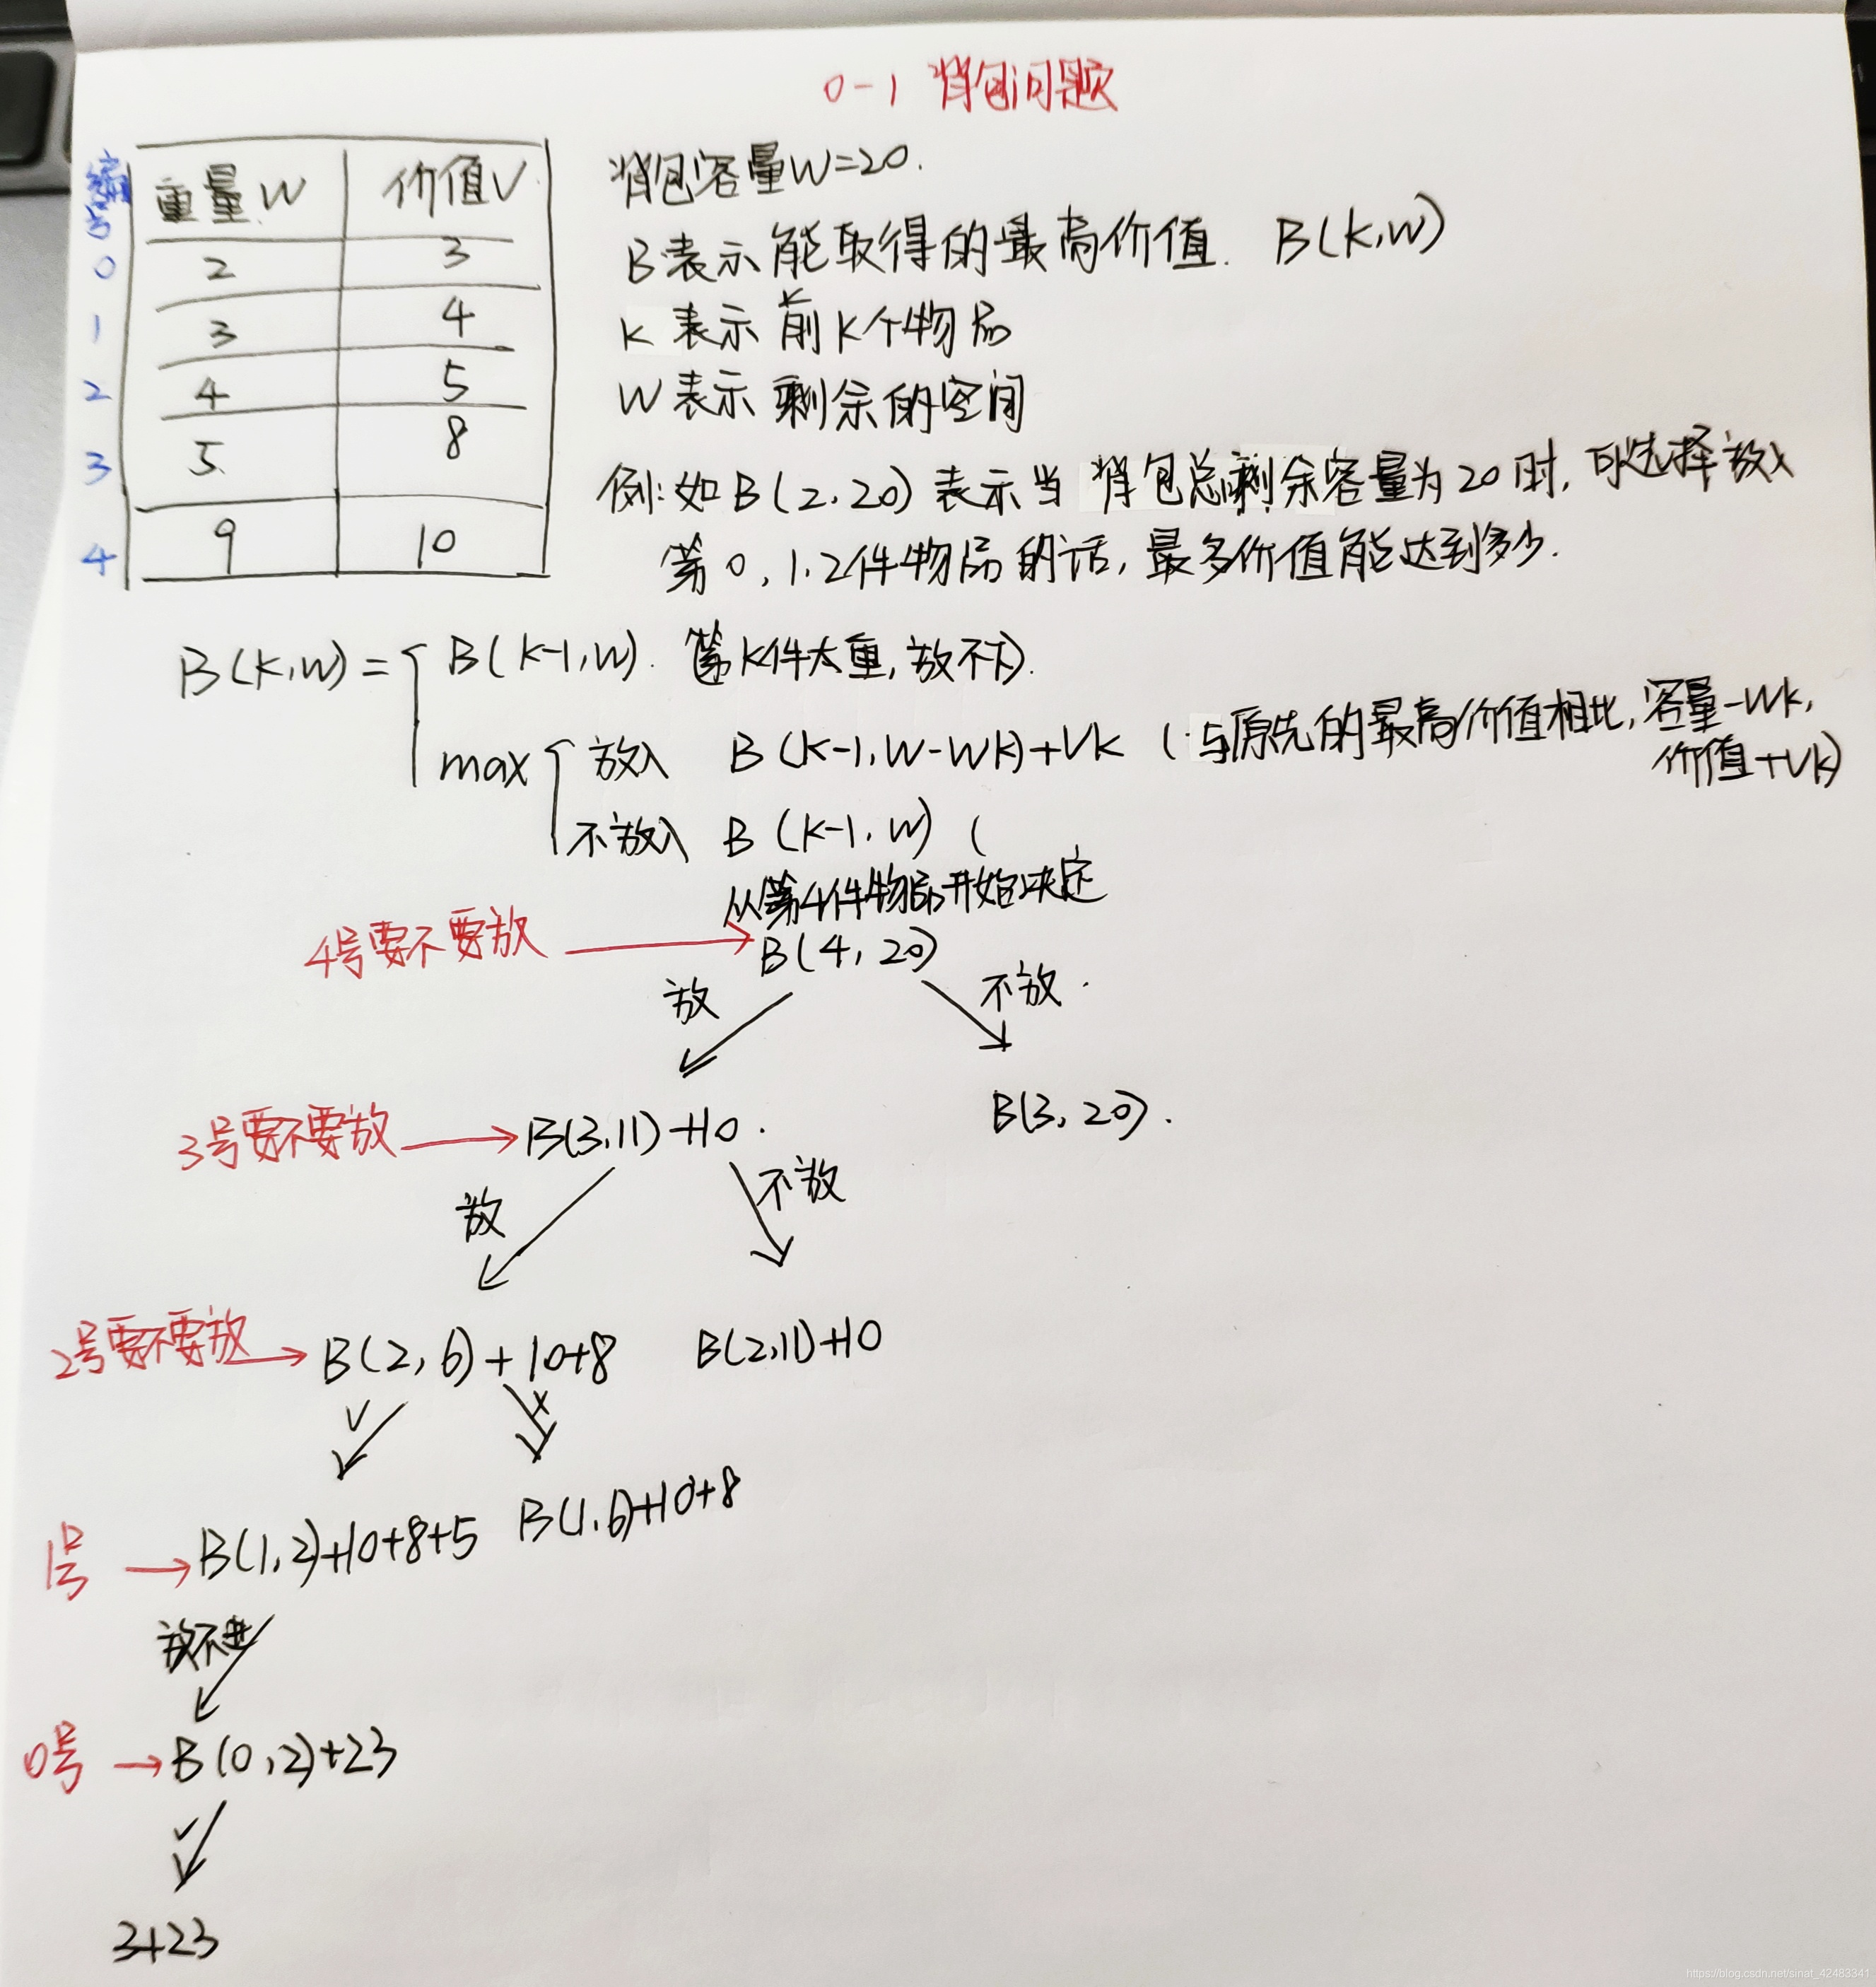 0-1 背包问题
编号 重量W 价值V
0 2 3
1 3 4
2 4 5
3 5 8
4 9 10
背包容量W=20.
B表示能取得的最高价值. B(k,w)
k 表示前k个物品
W表示剩余的空间
例:如B(2.20)表示当背包总剩余容量为20时,可选择放入
第0,1.2件物品的话,最多价值能达到多少.
B(k,w)= B(k-1,w). 第k件太重,放不下).
max 放入 B(k-1,w-wk)+vk (与原先的最高价值相比,容量-wk,
价值+vk)
不放入 B(k-1,w) (
从第4件物品开始决定
4号要不要放 B(4,20)
放 不放.
3号要不要放 B(3,11)+10. B(3,20).
放 不放
2号要不要放 B(2,6)+10+8 B(2,11)+10
√ ×
1号 B(1,2)+10+8+5 B(1,6)+10+8
放不进
0号 B(0,2)+23
√
3+23
https://blog.csdn.net/sinat_42483341